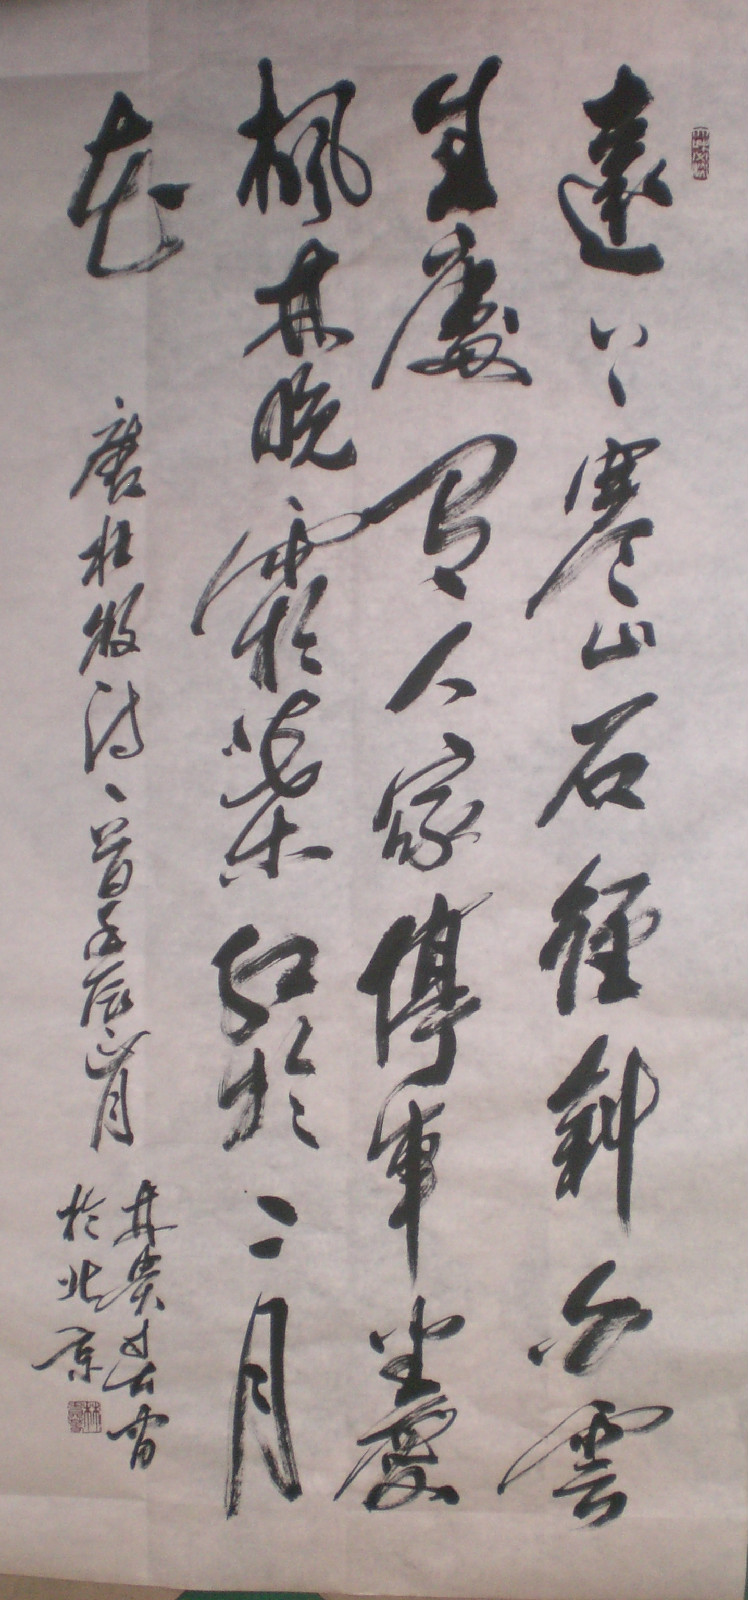 遠上寒山石徑斜白雲
生處有人家停車坐愛
楓林晚霜葉紅於二月
花
唐杜牧詩一首壬辰正月
林貴春書
於北京